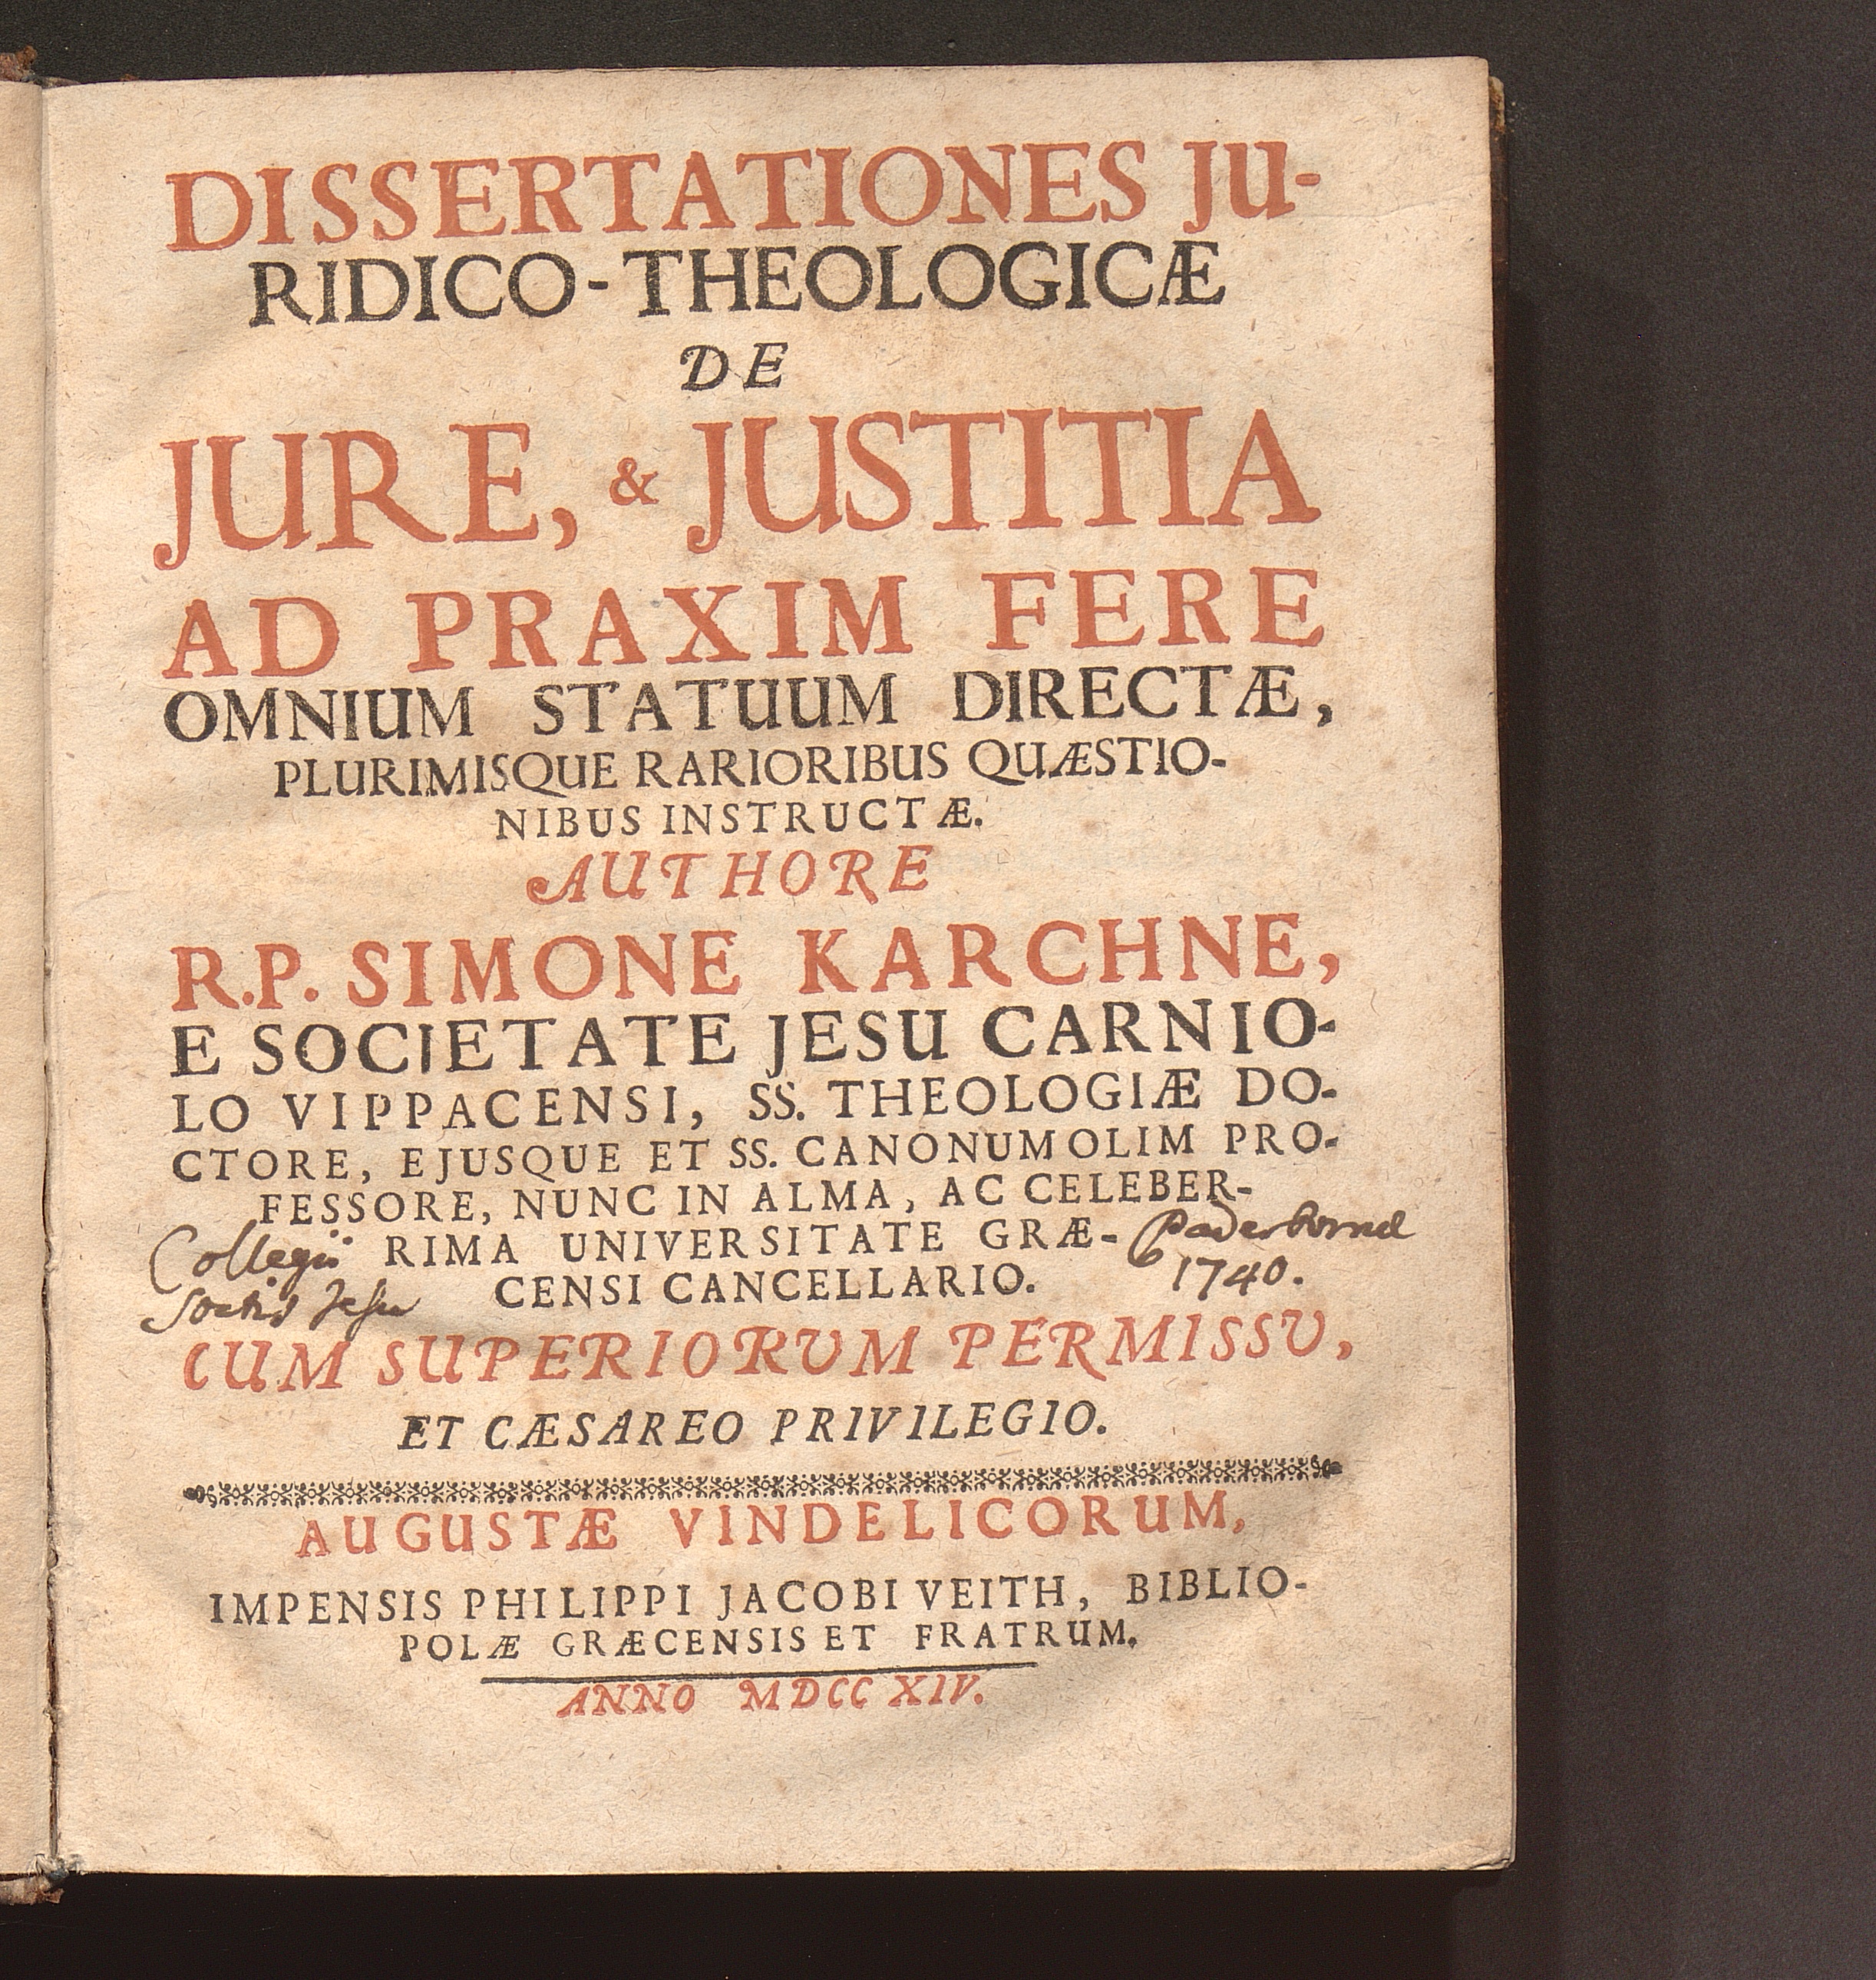 DISSERTATIONES JU-
RIDICO-THEOLOGICÆ
DE
JURE, & JUSTITIA
AD PRAXIM FERE
OMNIUM STATUUM DIRECTÆ,
PLURIMISQUE RARIORIBUS QUÆSTIO-
NIBUS INSTRUCTÆ.
AUTHORE
R.P. SIMONE KARCHNE,
E SOCIETATE JESU CARNIO-
LO VIPPACENSI, SS. THEOLOGIÆ DO-
CTORE, EJUSQUE ET SS. CANONUM OLIM PRO-
FESSORE, NUNC IN ALMA, AC CELEBER-
RIMA UNIVERSITATE GRÆ-
CENSI CANCELLARIO.
Collegii
Soctis Jesu
Paderbornæ
1740.
CUM SUPERIORUM PERMISSU,
ET CÆSAREO PRIVILEGIO.
AUGUSTÆ VINDELICORUM,
IMPENSIS PHILIPPI JACOBI VEITH, BIBLIO-
POLÆ GRÆCENSIS ET FRATRUM.
ANNO MDCC XIV.